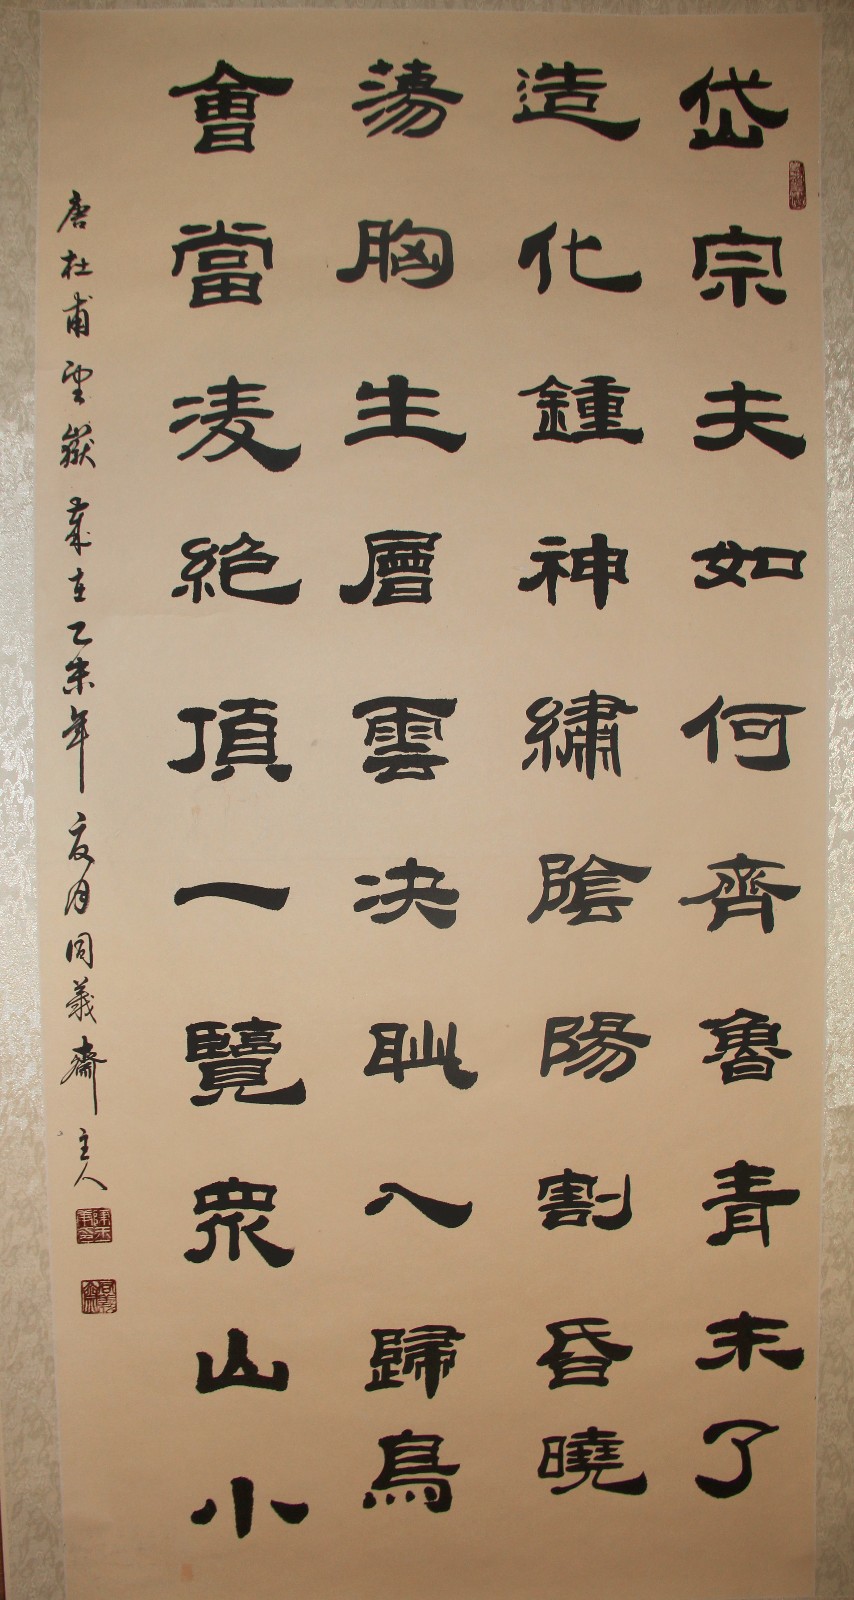 岱宗夫如何齊魯青未了
造化鍾神繡陰陽割昏曉
蕩胸生層雲决眦入歸鳥
會當凌絶頂一覽眾山小
唐杜甫望嶽歲在乙未年夏月同義齋主人